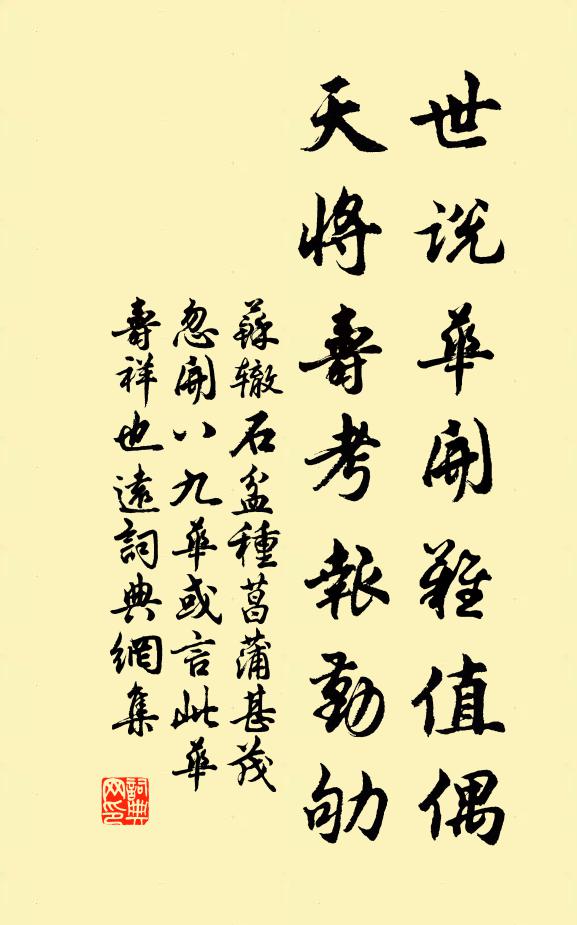 世説華開難值偶
天將壽考報勤劬
蘇轍石盆種菖蒲甚茂
忽開八九華或言此華
壽祥也遠詞典網集
詞典
网印